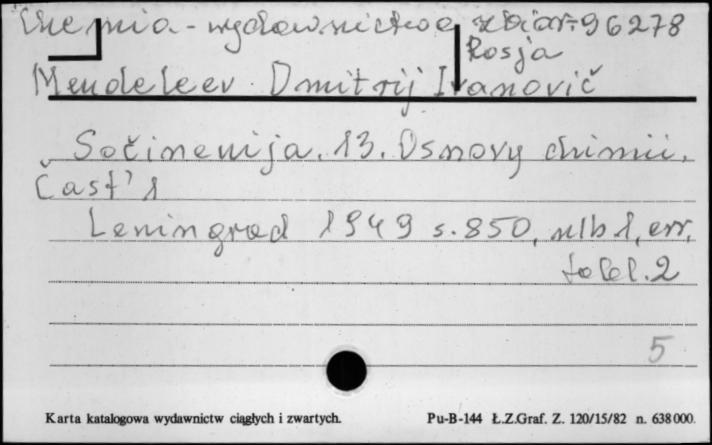 Chemia - wydawnictwa zbior. 96278
Rosja
Mendeleev Dmitrij Ivanovič
Sočinenija. 13. Osnovy chimii.
Čast' 1
Leningrad 1949 s. 850, nlb 1, err,
tabl. 2
5
Karta katalogowa wydawnictw ciągłych i zwartych. Pu-B-144 Ł.Z.Graf. Z. 120/15/82 n. 638000.